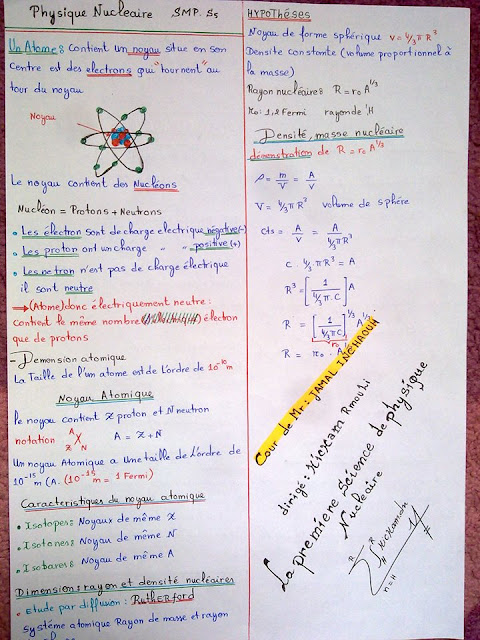 Physique Nucleaire SMP. S5
Un Atome : Contient un noyau situe en son
Centre est des electrons qui "tournent" au
tour du noyau
Noyau
Le noyau contient des Nucléons
Nucléon = Protons + Neutrons
• Les électron sont de charge electrique négative (-)
• Les proton ont un charge " " positive (+)
• Les netron n'ent pas de charge électrique
il sont neutre
⟹ (Atome) donc électriquement neutre :
contient le même nombre électron
que de protons
- Demension atomique
La Taille de l'un atome est de l'ordre de 10⁻¹⁰ m
Noyau Atomique
le noyau contient Z proton et N neutron
notation A X Z N A = Z + N
Un noyau Atomique a une taille de l'ordre de
10⁻¹⁵ m (A. (10⁻¹⁵ m = 1 Fermi)
Caracteristiques du noyau atomique
• Isotopes : Noyaux de même Z
• Isotones : Noyau de même N
• Isobares : Noyau de même A
Dimension : rayon et densité nucléaires
• Etude par diffusion : RutheRford
systéme atomique Rayon de masse et rayon
HYPOthéses
Noyau de forme sphérique V = 4/3 π R³
Densite constante (volume proportionnel à
la masse)
Rayon nucléaire : R = r₀ A^1/3
r₀ : 1,2 Fermi rayon de ¹H
Densité, masse nucléaire
démonstration de R = r₀ A^1/3
ρ = m/V = A/V
V = 4/3 π R³ volume de sphére
cts = A/V = A/(4/3 π R³)
C . 4/3 π R³ = A
R³ = [1/(4/3 π . C)] A
R = [1/(4/3 π . C)]^1/3 A^1/3
r₀
R = r₀ . A^1/3
Cour de Mr : JAMAL INCHAOUH
dirigé : HicHam Rmouki
La premiere Science de physique
Nucléaire